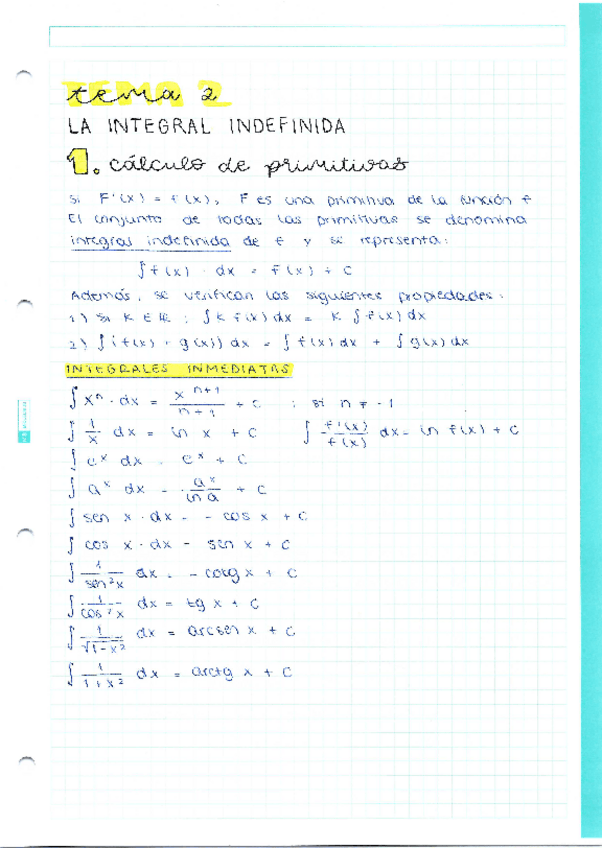 tema 2
LA INTEGRAL INDEFINIDA
1. cálculo de primitivas
Si F'(x) = f(x), F es una primitiva de la función f
El conjunto de todas las primitivas se denomina
integral indefinida de f y se representa:
∫f(x) · dx = F(x) + C
Además, se verifican las siguientes propiedades:
1) Si K ∈ ℝ : ∫K f(x) dx = K ∫f(x) dx
2) ∫(f(x) + g(x)) dx = ∫f(x) dx + ∫g(x) dx
INTEGRALES INMEDIATAS
∫xⁿ · dx = xⁿ⁺¹/(n+1) + C ; si n ≠ -1
∫1/x dx = ln x + C ∫f'(x)/f(x) dx = ln f(x) + C
∫eˣ dx = eˣ + C
∫aˣ dx = aˣ/ln a + C
∫sen x · dx = - cos x + C
∫cos x · dx = sen x + C
∫1/sen²x dx = - cotg x + C
∫1/cos²x dx = tg x + C
∫1/√(1-x²) dx = arcsen x + C
∫1/(1+x²) dx = arctg x + C